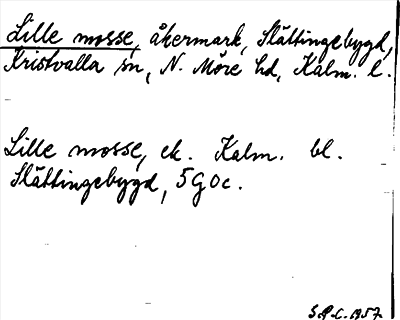 Lille mosse, åkermark, Slättingebygd,
Kristvalla sn, N. Möre hd, Kalm. l.
Lille mosse, ek. Kalm. bl.
Slättingebygd, 5G0c.
S.P.C. 1957